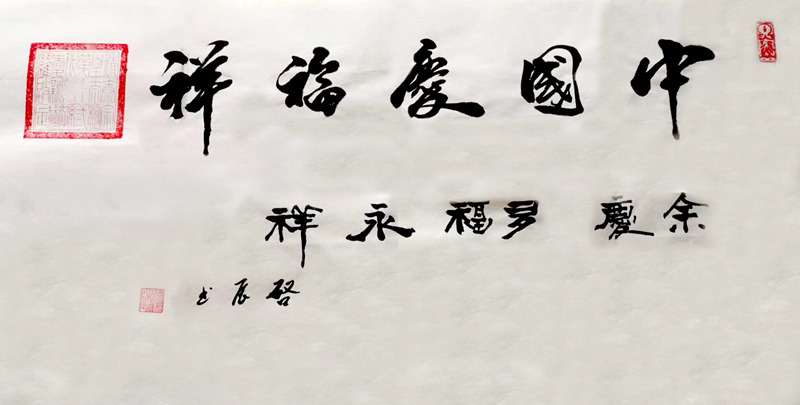 中國慶福祥
余慶 多福永祥
啓辰书